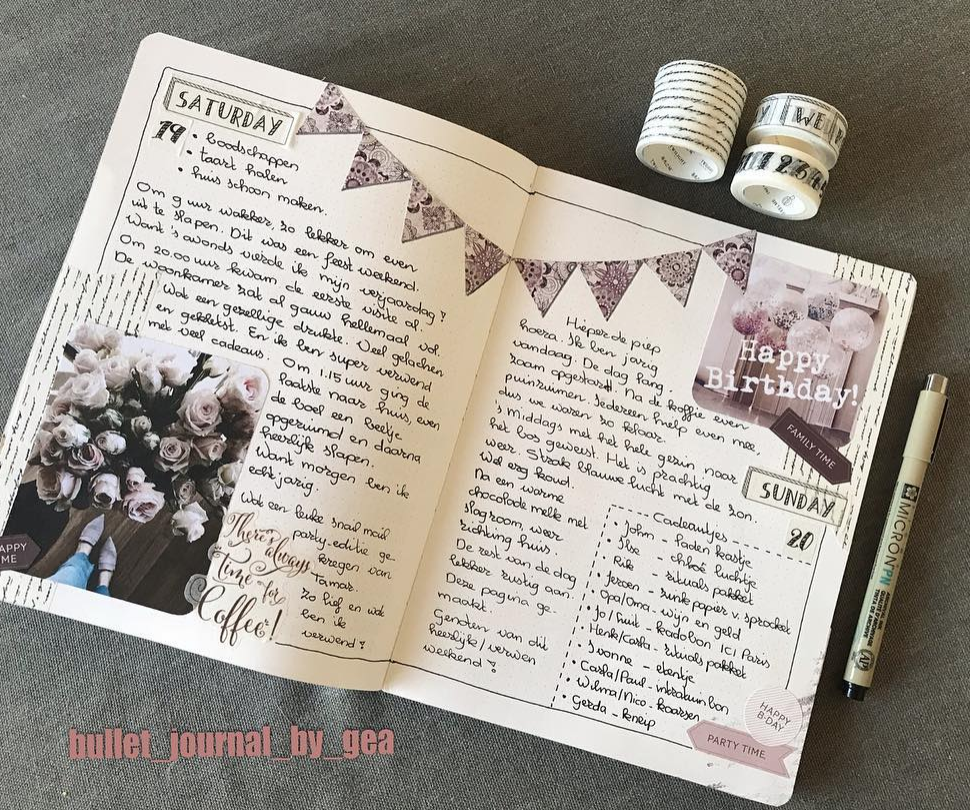 SATURDAY
19
• boodschappen
• taart halen
• huis schoon maken.
Om 9 uur wakker, zo lekker om even
uit te slapen. Dit was een feest weekend.
Want 's avonds vierde ik mijn verjaardag!
Om 20.00 uur kwam de eerste visite al.
De woonkamer zat al gauw hellemaal vol.
Wat een gezellige drukte. Veel gelachen
en gekletst. En ik ben super verwend
met veel cadeaus.
Om 1.15 uur ging de
laatste naar huis, even
de boel een beetje
opgeruimd en daarna
heerlijk slapen.
Want morgen ben ik
echt jarig.
Wat een leuke snail mail
party-editie ge-
kregen van
Tamar.
Zo lief en wat
ben ik
verwend!
HAPPY
TIME
There's always
Time for
Coffee!
Hieperdepiep
hoera. Ik ben jarig
vandaag. De dag lang-
zaam opgestart. Na de koffie even
puinruimen. Iedereen hielp even mee,
dus we waren zo klaar.
's Middags met het hele gezin naar
het bos geweest. Het is prachtig
weer. Strak blauwe lucht met de zon.
Wel erg koud.
Na een warme
chocolade melk met
slagroom, weer
richting huis.
De rest van de dag
lekker rustig aan.
Deze pagina ge-
maakt.
Genoten van dit
heerlijk/verwen
weekend!
Happy
Birthday!
FAMILY TIME
SUNDAY
20
Cadeautjes
• John - laden kastje
• Ilse - chloé luchtje
• Rik - rituals pakket
• Jeroen - zunk papier v. sprocket
• Opa/Oma - wijn en geld
• Jo/huit - kadobon ICI Paris
• Henk/Carla - rituals pakket
• Yvonne - etentje
• Carla/Paul - intratuin bon
• Wilma/Nico - kaarsen
• Gerda - kneip
HAPPY
B-DAY
PARTY TIME
MICRON PN
bullet_journal_by_gea